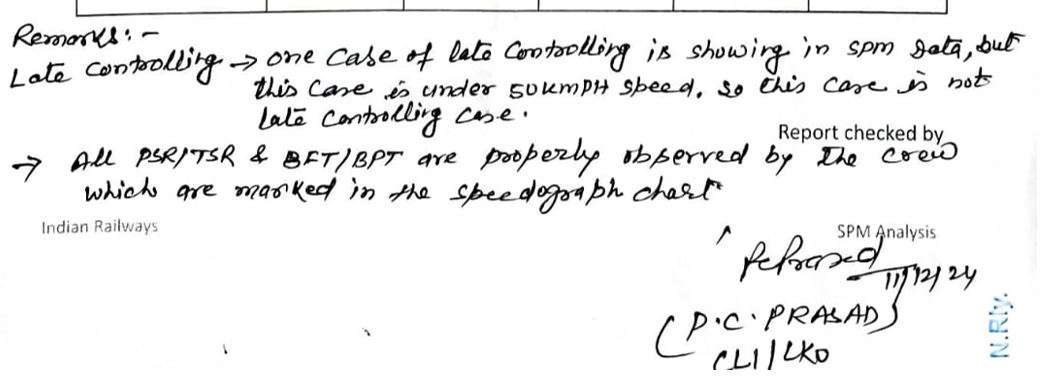 Remarks:-
Late Controlling → one case of late Controlling is showing in spm data, but
this case is under 50 KMPH speed. So this case is not
late controlling case.
Report checked by
→ All PSR/TSR & BFT/BPT are properly observed by the crew
which are marked in the speedograph chart
Indian Railways
SPM Analysis
11/12/24
(P.C. PRASAD)
CLI/LKO
N.Rly.